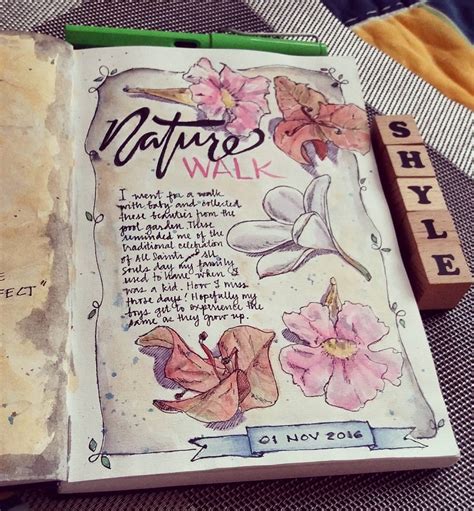 Nature
WALK
I went for a walk
with baby and collected
these beauties from the
pool garden. These
reminded me of the
traditional celebration
of All Saints all
souls day my family
used to have when I
was a kid. How I miss
those days! Hopefully my
boys get to experience the
same as they grow up.
01 NOV 2016
SHYLE